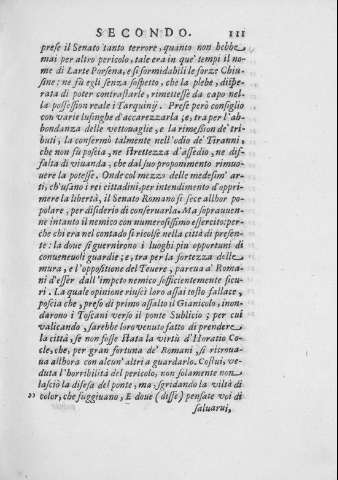 SECONDO. 111
prese il Senato tanto terrore, quanto non hebbe
mai per altro pericolo, tale era in que' tempi il no-
me di Larte Porsena, e si formidabili le forze Chiu-
sine: ne fù egli senza sospetto, che la plebe, dispe-
rata di poter contrastarle, rimettesse da capo nel-
la possession reale i Tarquinij. Prese però consiglio
con varie lusinghe d'accarezzarla; e, tra per l'ab-
bondanza delle vettouaglie, e la rimession de' tri-
buti, la confermò talmente nell'odio de' Tiranni,
che non fù poscia, ne strettezza d'assedio, ne dif-
falta di viuanda, che dal suo proponimento rimuo-
uere la potesse. Onde col mezzo delle medesim' ar-
ti, ch'usano i rei cittadini, per intendimento d'oppri-
mere la libertà, il Senato Romano si fece allhor po-
polare, per disiderio di conseruarla. Ma soprauuen-
ne intanto il nemico con numerosissimo essercito: per-
che chi era nel contado si ricolse nella città di presen-
te: la doue si guernirono i luoghi più opportuni di
conueneuoli guardie; e, tra per la fortezza delle
mura, e l'oppositione del Teuere, pareua a' Roma-
ni d'esser dall'impeto nemico sofficientemente sicu-
ri. La quale opinione riuscì loro assai tosto fallace,
poscia che, preso di primo assalto il Gianicolo, inon-
darono i Toscani verso il ponte Sublicio; per cui
valicando, sarebbe loro venuto fatto di prendere
la città, se non fosse stata la virtù d'Horatio Co-
cle, che, per gran fortuna de' Romani, si ritroua-
ua allhora con alcun' altri a guardarlo. Costui, ve-
duta l'horribilità del pericolo, non solamente non
lasciò la difesa del ponte, ma, sgridando la viltà di
color, che fuggiuano, E doue (disse) pensate voi di
saluarui,